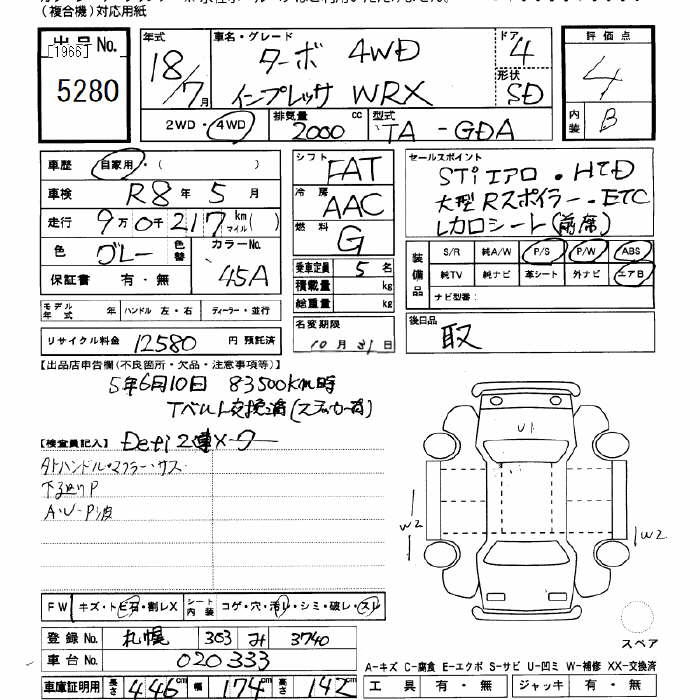 (複合機)対応用紙
出品No.
[1966]
5280
年式
18/7月
車名・グレード
ターボ 4WD
インプレッサ WRX
ドア
4
形状
SD
評価点
4
内装
B
2WD・4WD
排気量
2000 cc
型式
TA-GDA
車歴 自家用・( )
車検 R8年5月
走行 9万0千217km マイル( )
色 グレー
色替
カラーNo.
45A
保証書 有・無
シフト FAT
冷房 AAC
燃料 G
乗車定員 5名
積載量 kg
総重量 kg
セールスポイント
STiエアロ・HTD
大型Rスポイラー・ETC
レカロシート(前席)
装備品
S/R 純A/W P/S P/W ABS
純TV 純ナビ 革シート 外ナビ エアB
ナビ型番:
モデル年式 年 ハンドル 左・右 ディーラー・並行
リサイクル料金 12580 円 預託済
名変期限
10月31日
後日品
取
【出品店申告欄(不良箇所・欠品・注意事項等)】
5年6月10日 83500km時
Tベルト交換済(ステッカー有)
【検査員記入】 Defi 2連メーター
タトハンドル・マフラー・サス
下廻りP
A・U・P波
U1
W2
W2
FW キズ・トビ石・割レX
シート内装 コゲ・穴・汚レ・シミ・破レ・スレ
スペア
登録No. 札幌 303 み 3740
車台No. 020333
車庫証明用 長さ 446cm 幅 174cm 高さ 142cm
A-キズ C-腐食 E-エクボ S-サビ U-凹ミ W-補修 XX-交換済
工具 有・無 ジャッキ 有・無